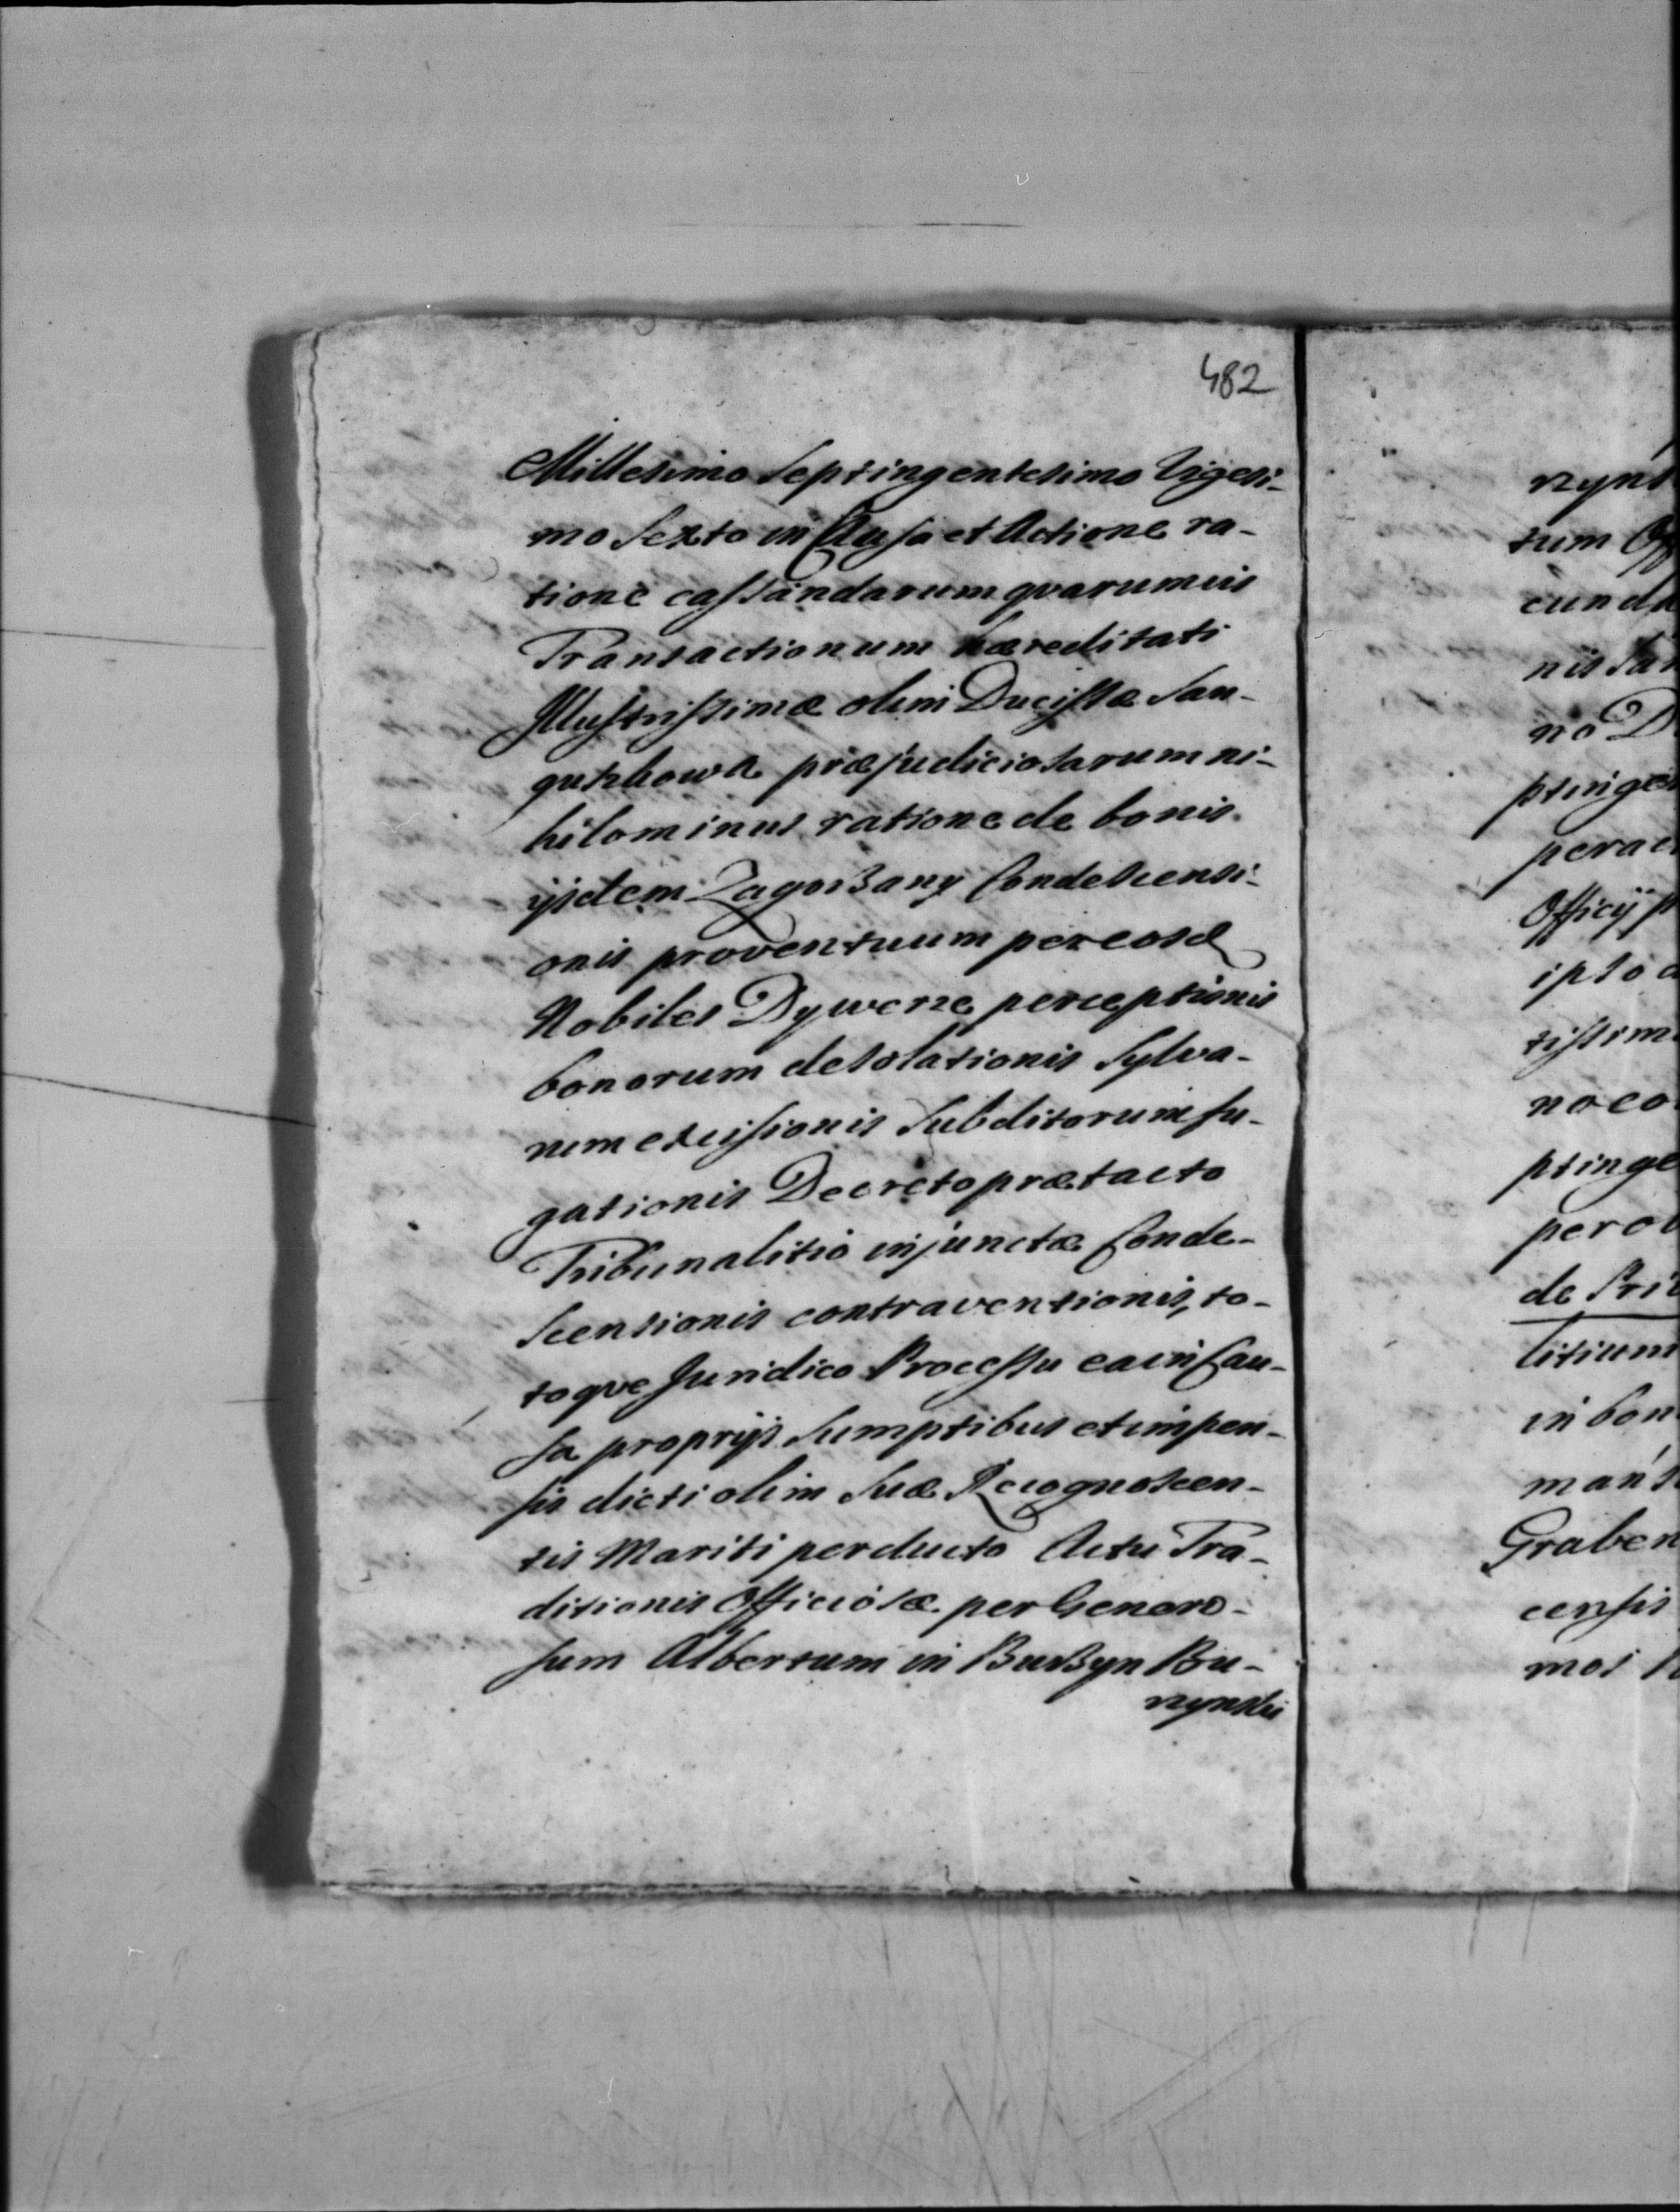 482
Millesimo Septingentesimo Vigesi-
mo Sexto in Causa et Actione ra-
tione cassandarum qvarumvis
Transactionum hæreditati
Illustrissimæ olim Ducissæ San-
guszkowa præjudiciosarum ni-
hilominus ratione de bonis
ijsdem Zagorzany Condescensi-
onis proventuum per eosd
Nobiles Dywerze perceptionis
bonorum desolationis Sylva-
rum excisionis Subditorum fu-
gationis Decreto prætacto
Tribunalitio injunctæ Conde-
scensionis contraventionis, to-
toqve Juridico Processu ea in Cau-
sa proprijs Sumptibus et impen-
sis dicti olim Suæ Recognoscen-
tis Mariti perducto Actu Tra-
ditionis Officiosæ per Genero-
sum Albertum in Burzyn Bu-
rzynski
rzyns
tum
cund
nis
no D
ptinge
perac
Officij
ipso
tissim
no co
ptinge
per
de Pri
litium
in bon
Graben
censis
mos